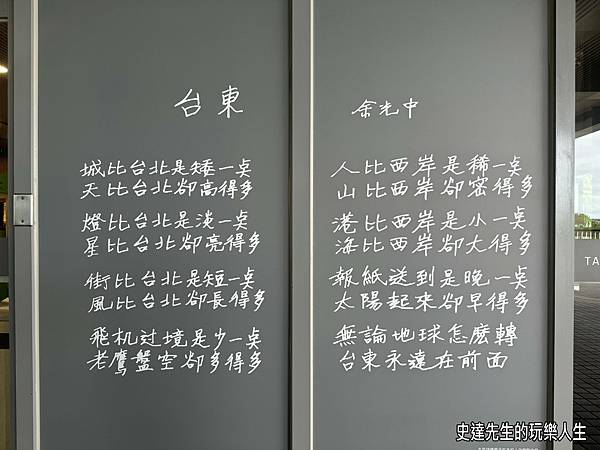 台東
余光中
城比台北是矮一点
天比台北卻高得多
燈比台北是淡一点
星比台北卻亮得多
街比台北是短一点
風比台北卻長得多
飛机过境是少一点
老鷹盤空卻多得多
人比西岸是稀一点
山比西岸卻密得多
港比西岸是小一点
海比西岸卻大得多
報紙送到是晚一点
太陽起來卻早得多
無論地球怎麼轉
台東永遠在前面
TA
史達先生的玩樂人生